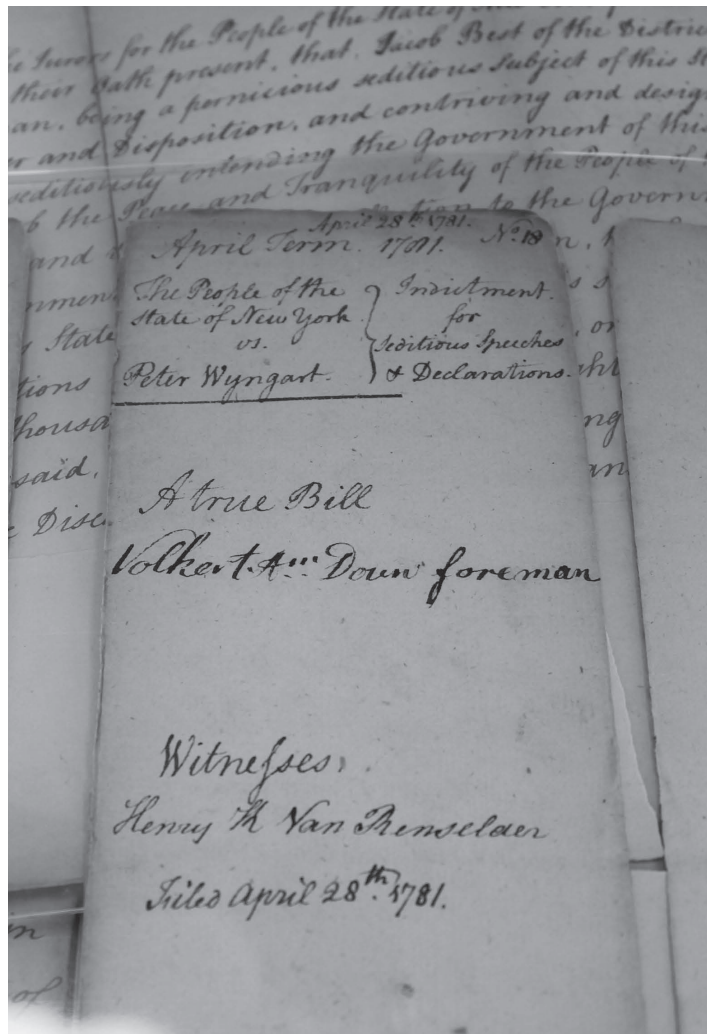 he Jurors for the People of the State of
their Oath present, that Jacob Best of the Distric
an, being a pernicious seditious Subject of this
er and Disposition, and contriving and desig
seditiously intending the Government of this
b the Peace and Tranquility of the People of
to the Govern
and
nmen
State
tions
housa
said,
Disc
April 28th 1781.
April Term. 1781. No. 18
The People of the
State of New York
vs.
Peter Wyngart.
Indictment.
for
Seditious Speeches
& Declarations.
A true Bill
Volkert Ams Douw foreman
Witnesses,
Henry K Van Renselaer
Filed April 28th. 1781.
or
ght
ng
an
in
of